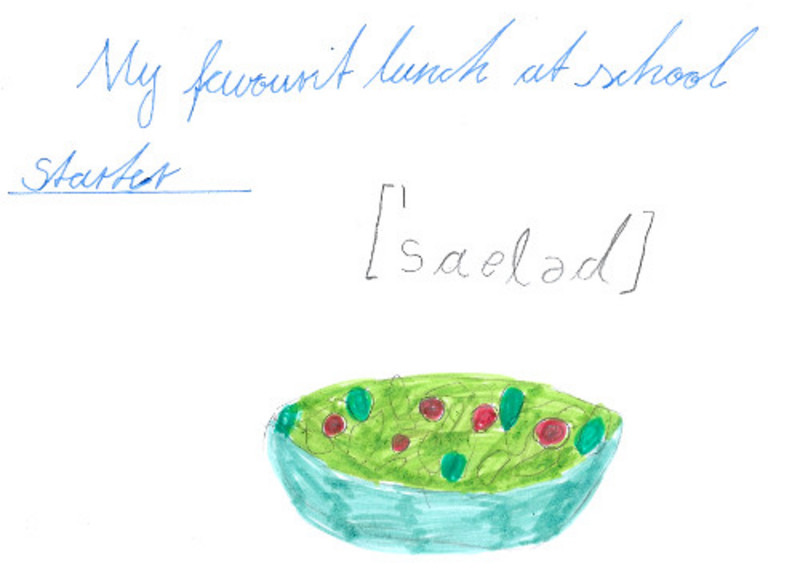 My favourit lunch at school
starter
['saeləd]